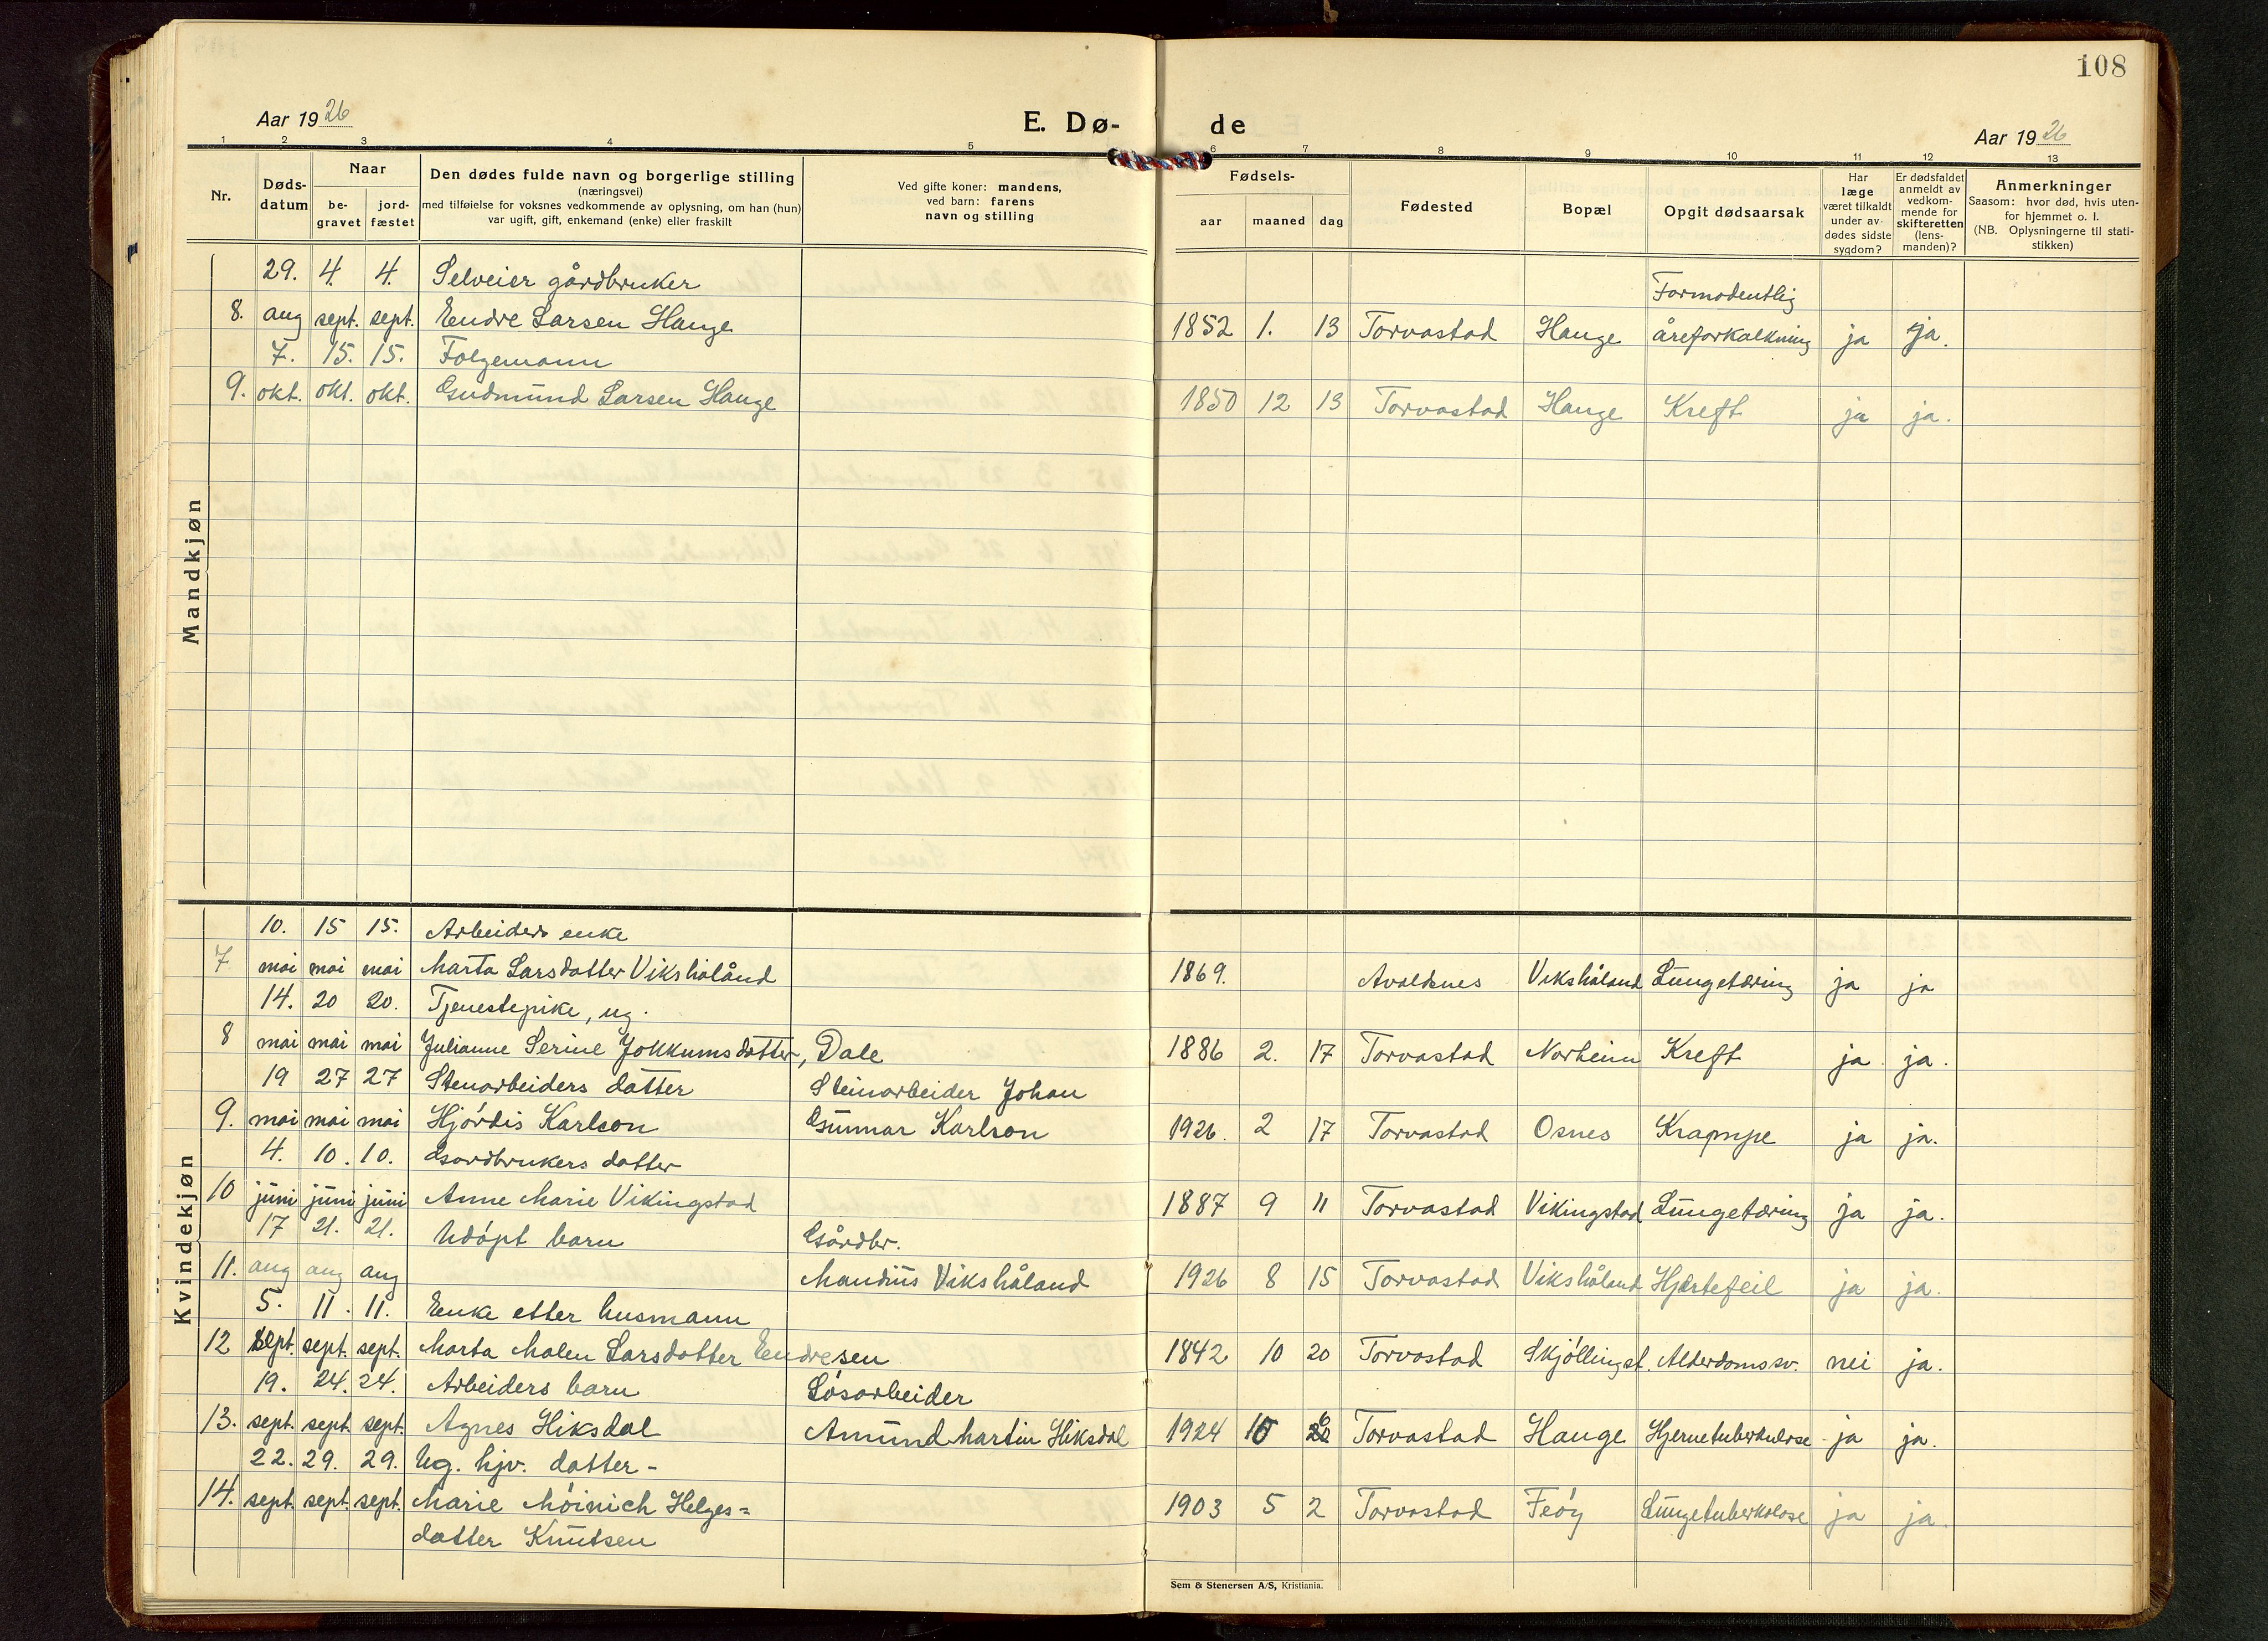 108
Aar 1926
E. Dø-de
Aar 1926
1 2 3 4 5 6 7 8 9 10 11 12 13
Nr.
Døds-datum
Naar
be-gravet
jord-fæstet
Den dødes fulde navn og borgerlige stilling
(næringsvei)
med tilføielse for voksnes vedkommende av oplysning, om han (hun)
var ugift, gift, enkemand (enke) eller fraskilt
Ved gifte koner: mandens,
ved barn: farens
navn og stilling
Fødsels-
aar maaned dag
Fødested
Bopæl
Opgit dødsaarsak
Har
læge
været tilkaldt
under av-
dødes sidste
sygdom?
Er dødsfaldet
anmeldt av
vedkom-
mende for
skifteretten
(lens-
manden)?
Anmerkninger
Saasom: hvor død, hvis uten-
for hjemmet o. l.
(NB. Oplysningerne til stati-
stikken)
Mandkjøn
29. 4. 4. Selveier gårdbruker Formodentlig
8. aug sept. sept. Endre Larsen Hauge 1852 1. 13 Torvastad Hauge åreforkalkning ja ja.
7. 15. 15. Følgemann
9. okt. okt. okt. Gudmund Larsen Hauge 1850 12 13 Torvastad Hauge Kreft ja ja.
Kvindekjøn
10. 15 15. Arbeiders enke
7 mai mai mai Marta Larsdatter Vikshåland 1869. Avaldsnes Vikshåland Lungetæring ja ja
14. 20 20. Tjenestepike, ug.
8 mai mai mai Julianne Serine Jokkumsdatter, Dale 1886 2. 17 Torvastad Norheim Kreft ja ja.
19 27 27 Stenarbeiders datter Steinarbeider Johan
9. mai mai mai Hjördis Karlson Gunnar Karlson 1926. 2 17 Torvastad Osnes Krampe ja ja.
4. 10. 10. Gardbrukers datter
10 juni juni juni Anne Marie Vikingstad 1887 9 11 Torvastad Vikingstad Lungetæring ja ja.
17 21. 21. Udöpt barn Gårdbr.
11. aug aug aug Mandius Vikshåland 1926 8 15 Torvastad Vikshåland Hjertefeil ja ja.
5. 11. 11. Enke etter husmann
12 sept. sept. sept. Marta Malen Larsdatter Endresen 1842 10 20 Torvastad Skjöllingst. Alderdomssv. nei ja.
19. 24. 24. Arbeiders barn Lösarbeider
13. sept. sept. sept. Agnes Hiksdal Amund Martin Hiksdal 1924 10 26 Torvastad Hauge Hjernetuberkulose ja ja.
22. 29. 29. Ug. hjv. datter -
14. sept. sept. sept. Marie Möinich Helges= 1903 5 2 Torvastad Feöy Lungetuberkolose ja ja.
datter Knutsen
Sem & Stenersen A/S, Kristiania.